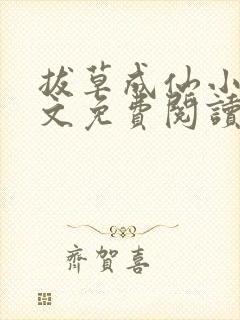 拔草成仙小
文免費閱讀
齊賀喜